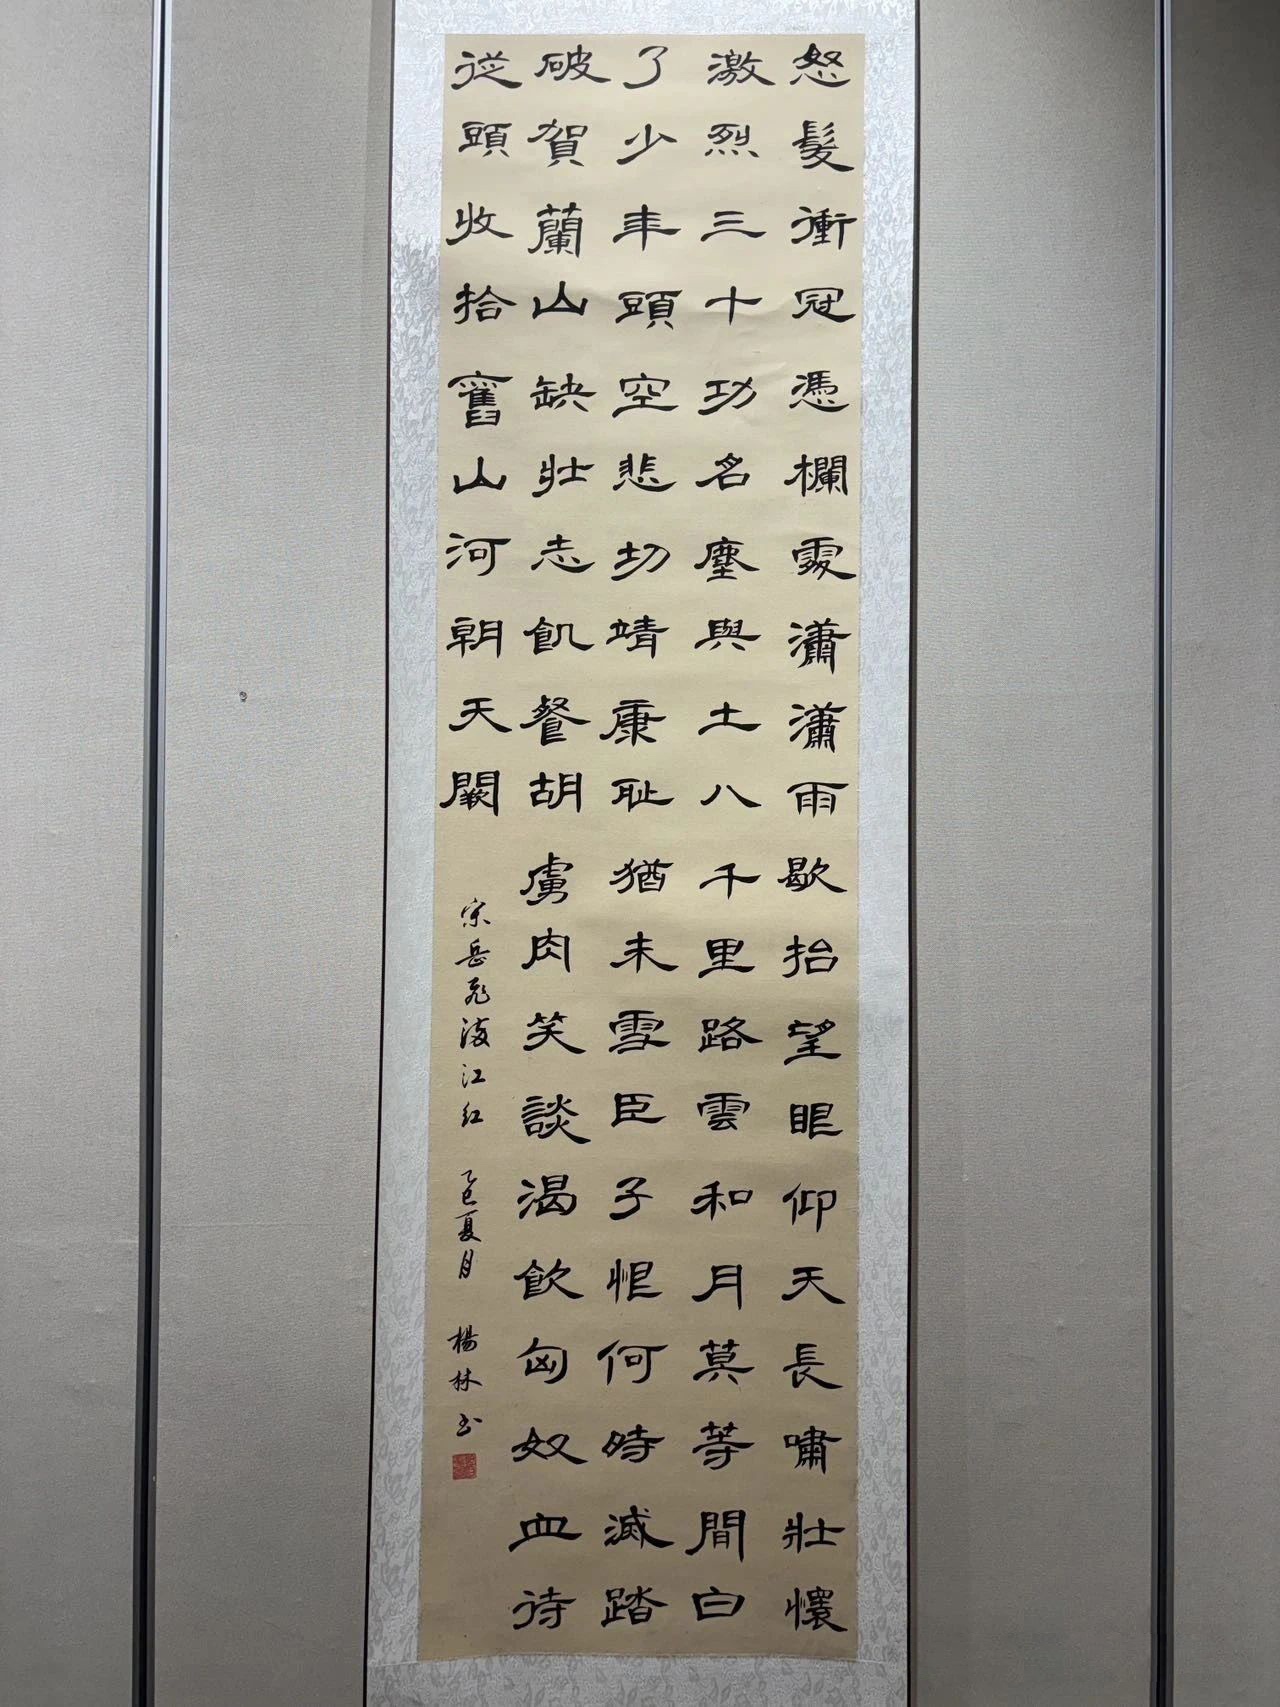 怒髮衝冠憑欄處瀟瀟雨歇抬望眼仰天長嘯壯懷
激烈三十功名塵與土八千里路雲和月莫等間白
了少年頭空悲切靖康耻猶未雪臣子恨何時滅踏
破賀蘭山缺壯志飢餐胡虜肉笑談渴飲匈奴血待
從頭收拾舊山河朝天闕
宋岳飛滿江红 乙巳夏月 楊林书